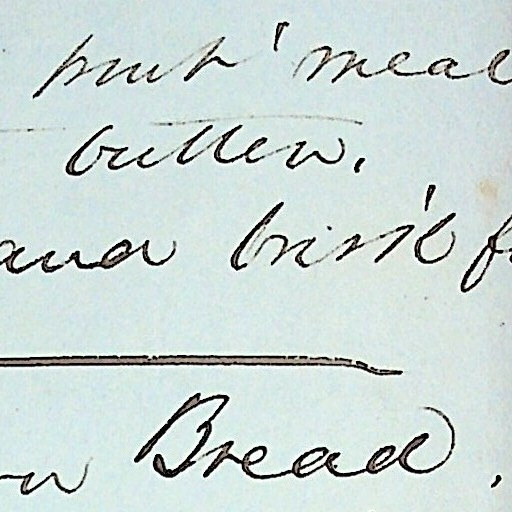 pint meal
butter.
and brisk
Bread.